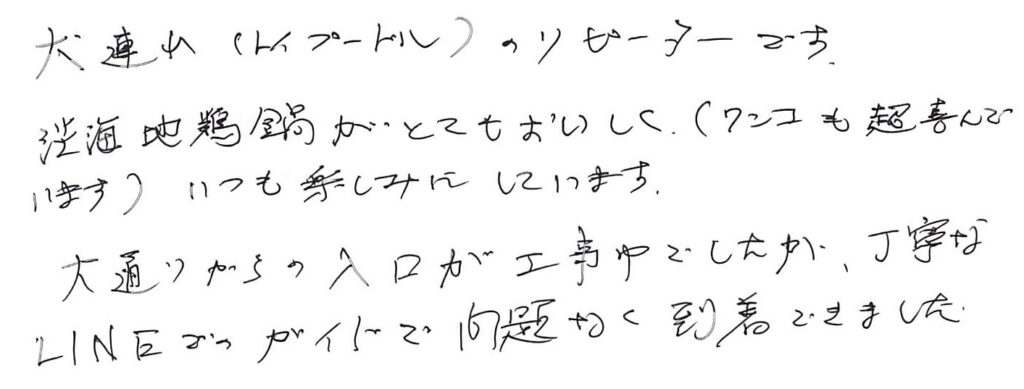 犬連れ(トイプードル)のリピーターです。
渥海地鶏鍋がとてもおいしく、(ワンコも超喜んで
います)いつも楽しみにしています。
大通りからの入口が工事中でしたが、丁寧な
LINEでのガイドで問題なく到着できました